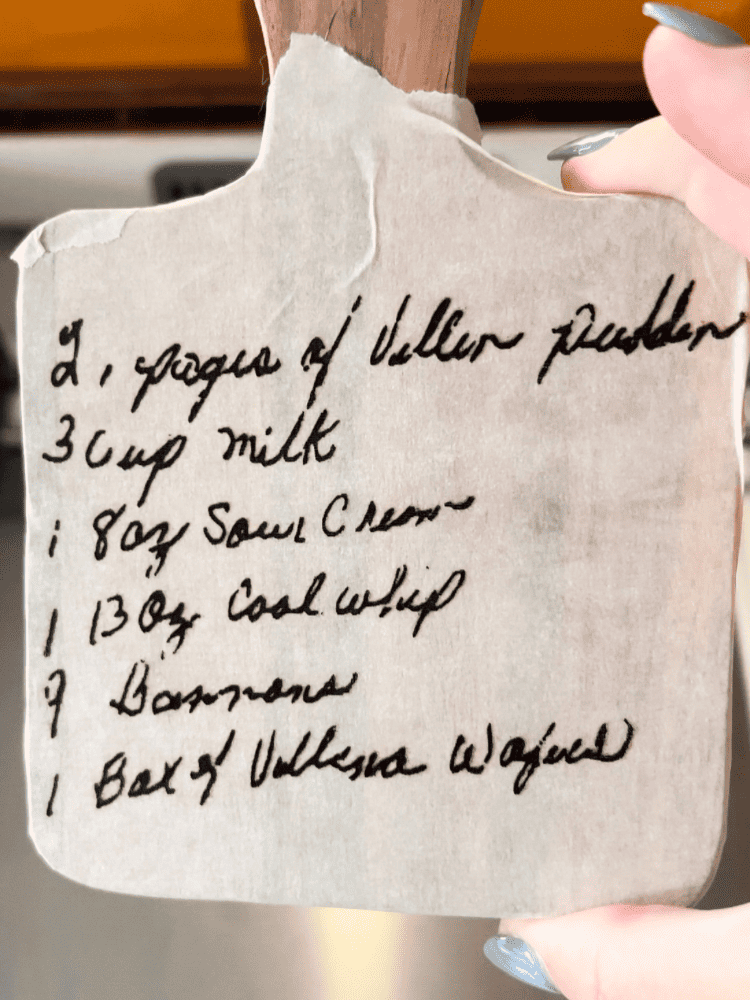 2, pages of Vellin puddin
3 Cup milk
1 8 oz Sour Cream
1 13 oz Cool whip
9 Bannans
1 Box of Vellena Wafers